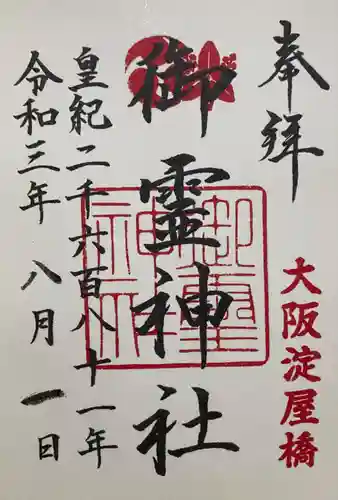 奉拝
大阪淀屋橋
御霊神社
御霊神社
皇紀二千六百八十一年
令和三年八月一日